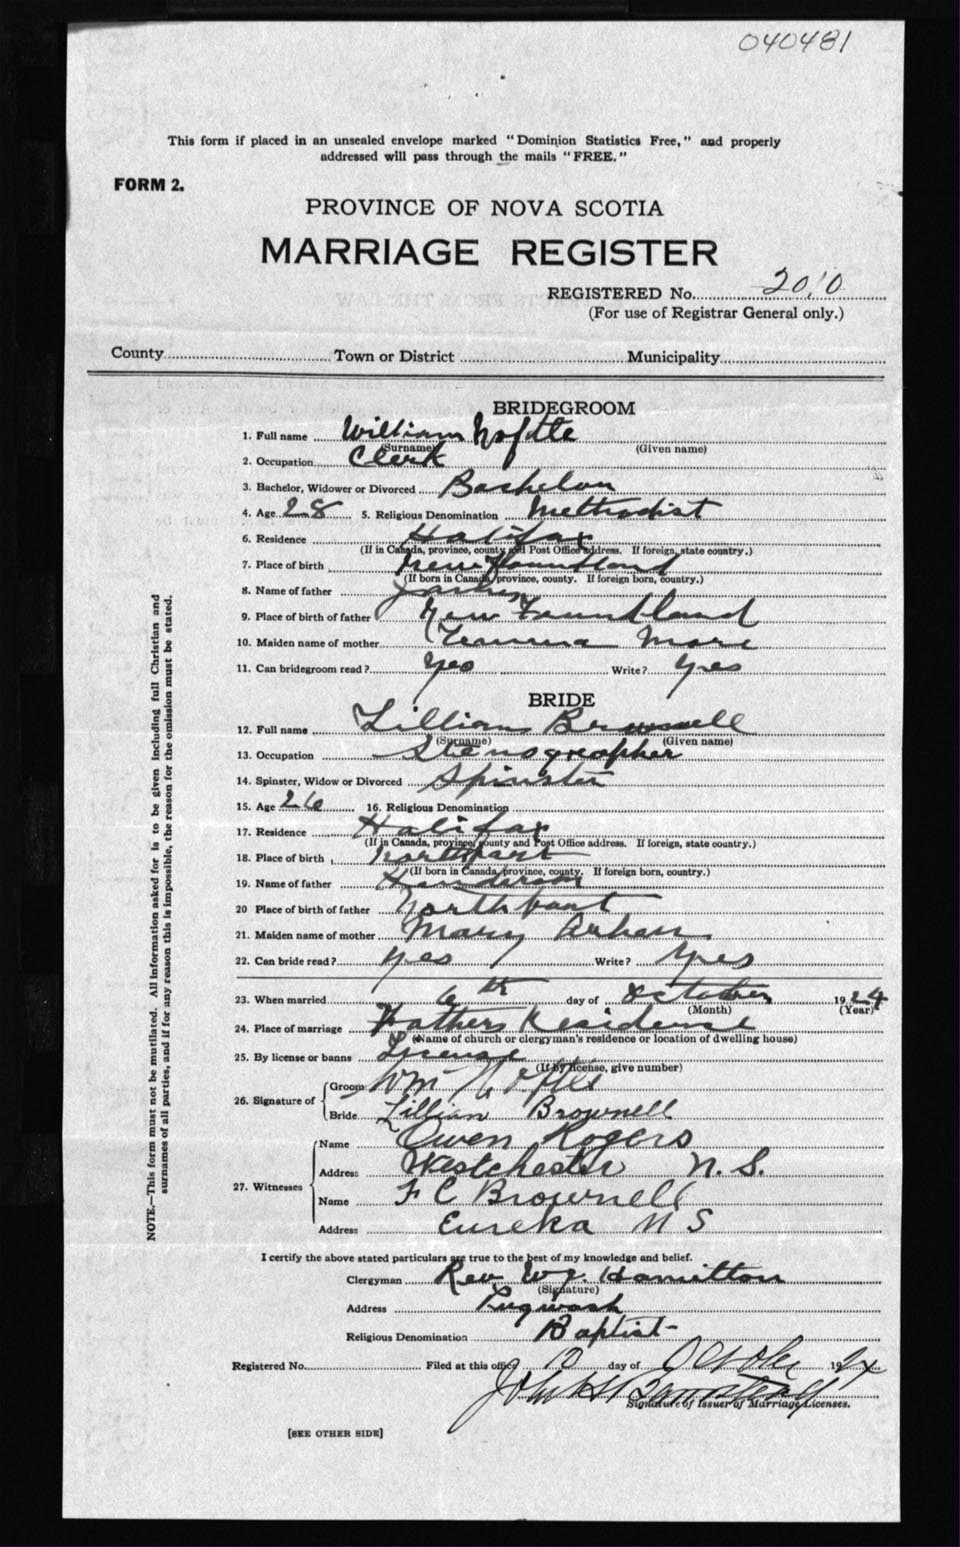 040481
This form if placed in an unsealed envelope marked "Dominion Statistics Free," and properly
addressed will pass through the mails "FREE."
FORM 2.
PROVINCE OF NOVA SCOTIA
MARRIAGE REGISTER
REGISTERED No. 2010
(For use of Registrar General only.)
County Town or District Municipality
BRIDEGROOM
1. Full name William Noftle
(Surname) (Given name)
2. Occupation Clerk
3. Bachelor, Widower or Divorced Bachelor
4. Age 28 5. Religious Denomination Methodist
6. Residence Halifax
(If in Canada, province, county and Post Office address. If foreign, state country.)
7. Place of birth New Foundland
(If born in Canada, province, county. If foreign born, country.)
8. Name of father
9. Place of birth of father New Foundland
10. Maiden name of mother
11. Can bridegroom read? Yes Write? Yes
BRIDE
12. Full name Lillian Brownell
(Surname) (Given name)
13. Occupation Stenographer
14. Spinster, Widow or Divorced Spinster
15. Age 26 16. Religious Denomination
17. Residence Halifax
(If in Canada, province, county and Post Office address. If foreign, state country.)
18. Place of birth Northport
(If born in Canada, province, county. If foreign born, country.)
19. Name of father
20 Place of birth of father Northport
21. Maiden name of mother Mary
22. Can bride read? Yes Write? Yes
23. When married 6th day of October 1924
(Month) (Year)
24. Place of marriage Fathers Residence
(Name of church or clergyman's residence or location of dwelling house)
25. By license or banns License
(If by license, give number)
26. Signature of
Groom Wm Noftle
Bride Lillian Brownell
27. Witnesses
Name Owen Rogers
Address Westchester N. S.
Name F C Brownell
Address Eureka N S
I certify the above stated particulars are true to the best of my knowledge and belief.
Clergyman Rev W. J. Hamilton
(Signature)
Address Pugwash
Religious Denomination Baptist
Registered No. Filed at this office day of October 1924
John
Signature of Issuer of Marriage Licenses.
[SEE OTHER SIDE]
NOTE.—This form must not be mutilated. All information asked for is to be given including full Christian and
surnames of all parties, and if for any reason this is impossible, the reason for the omission must be stated.